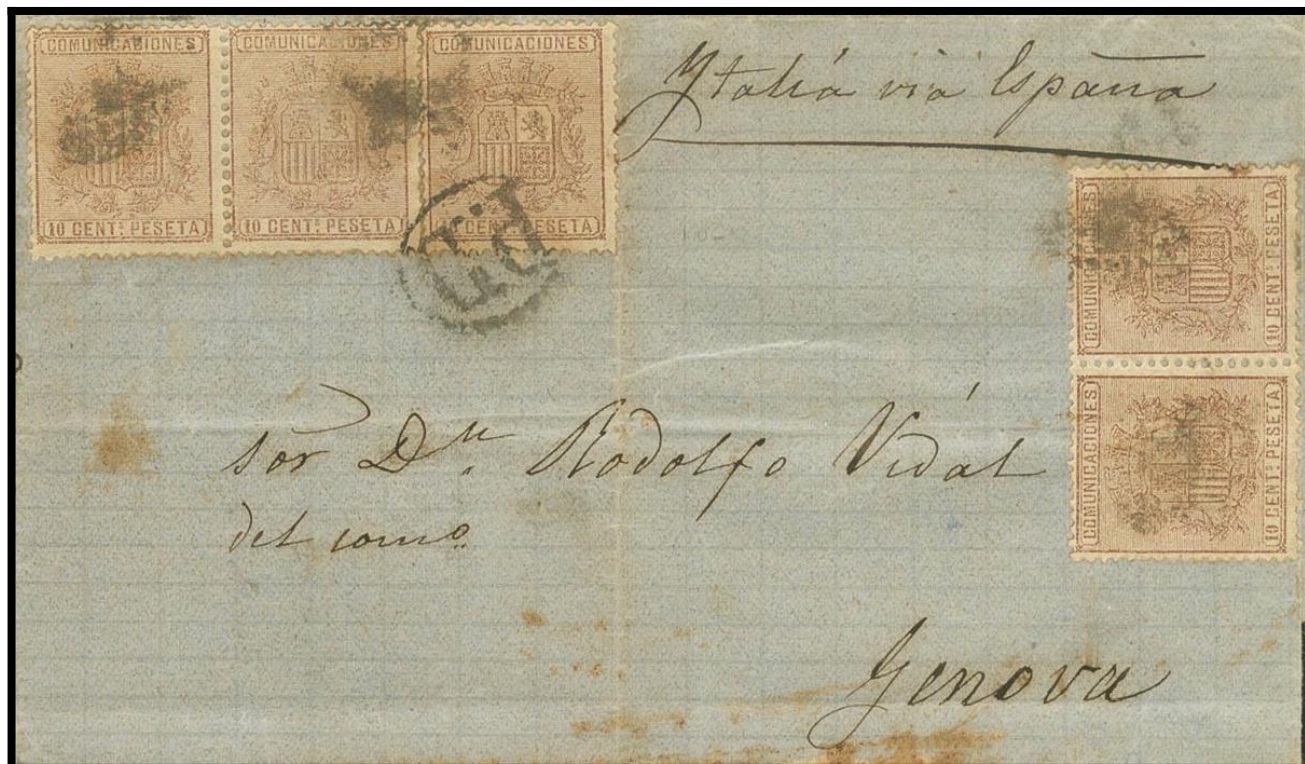 COMUNICACIONES COMUNICACIONES COMUNICACIONES
10 CENT.s PESETA 10 CENT.s PESETA 10 CENT.s PESETA
P.D
Ytaliá via España
COMUNICACIONES 10 CENT.s PESETA
COMUNICACIONES 10 CENT.s PESETA
Sor Dn Rodolfo Vidal
del comº
Genova